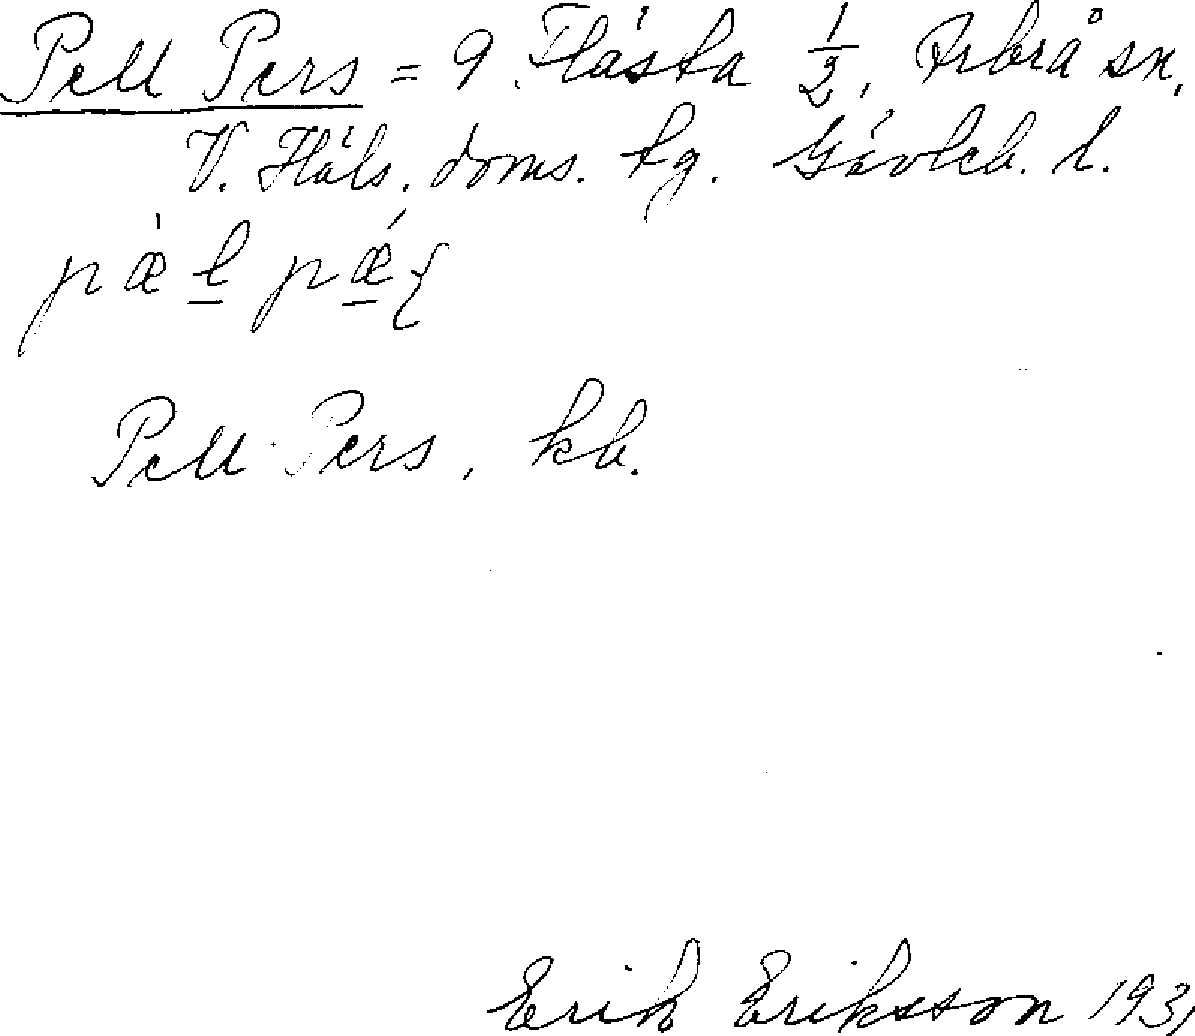 Pell Pers = 9 Flästa 1/2, Arbrå sn,
V. Häls. doms. tg. Gävleb. l.
pæ̀l pǽ
Pell Pers, kb.
Erik Eriksson 193